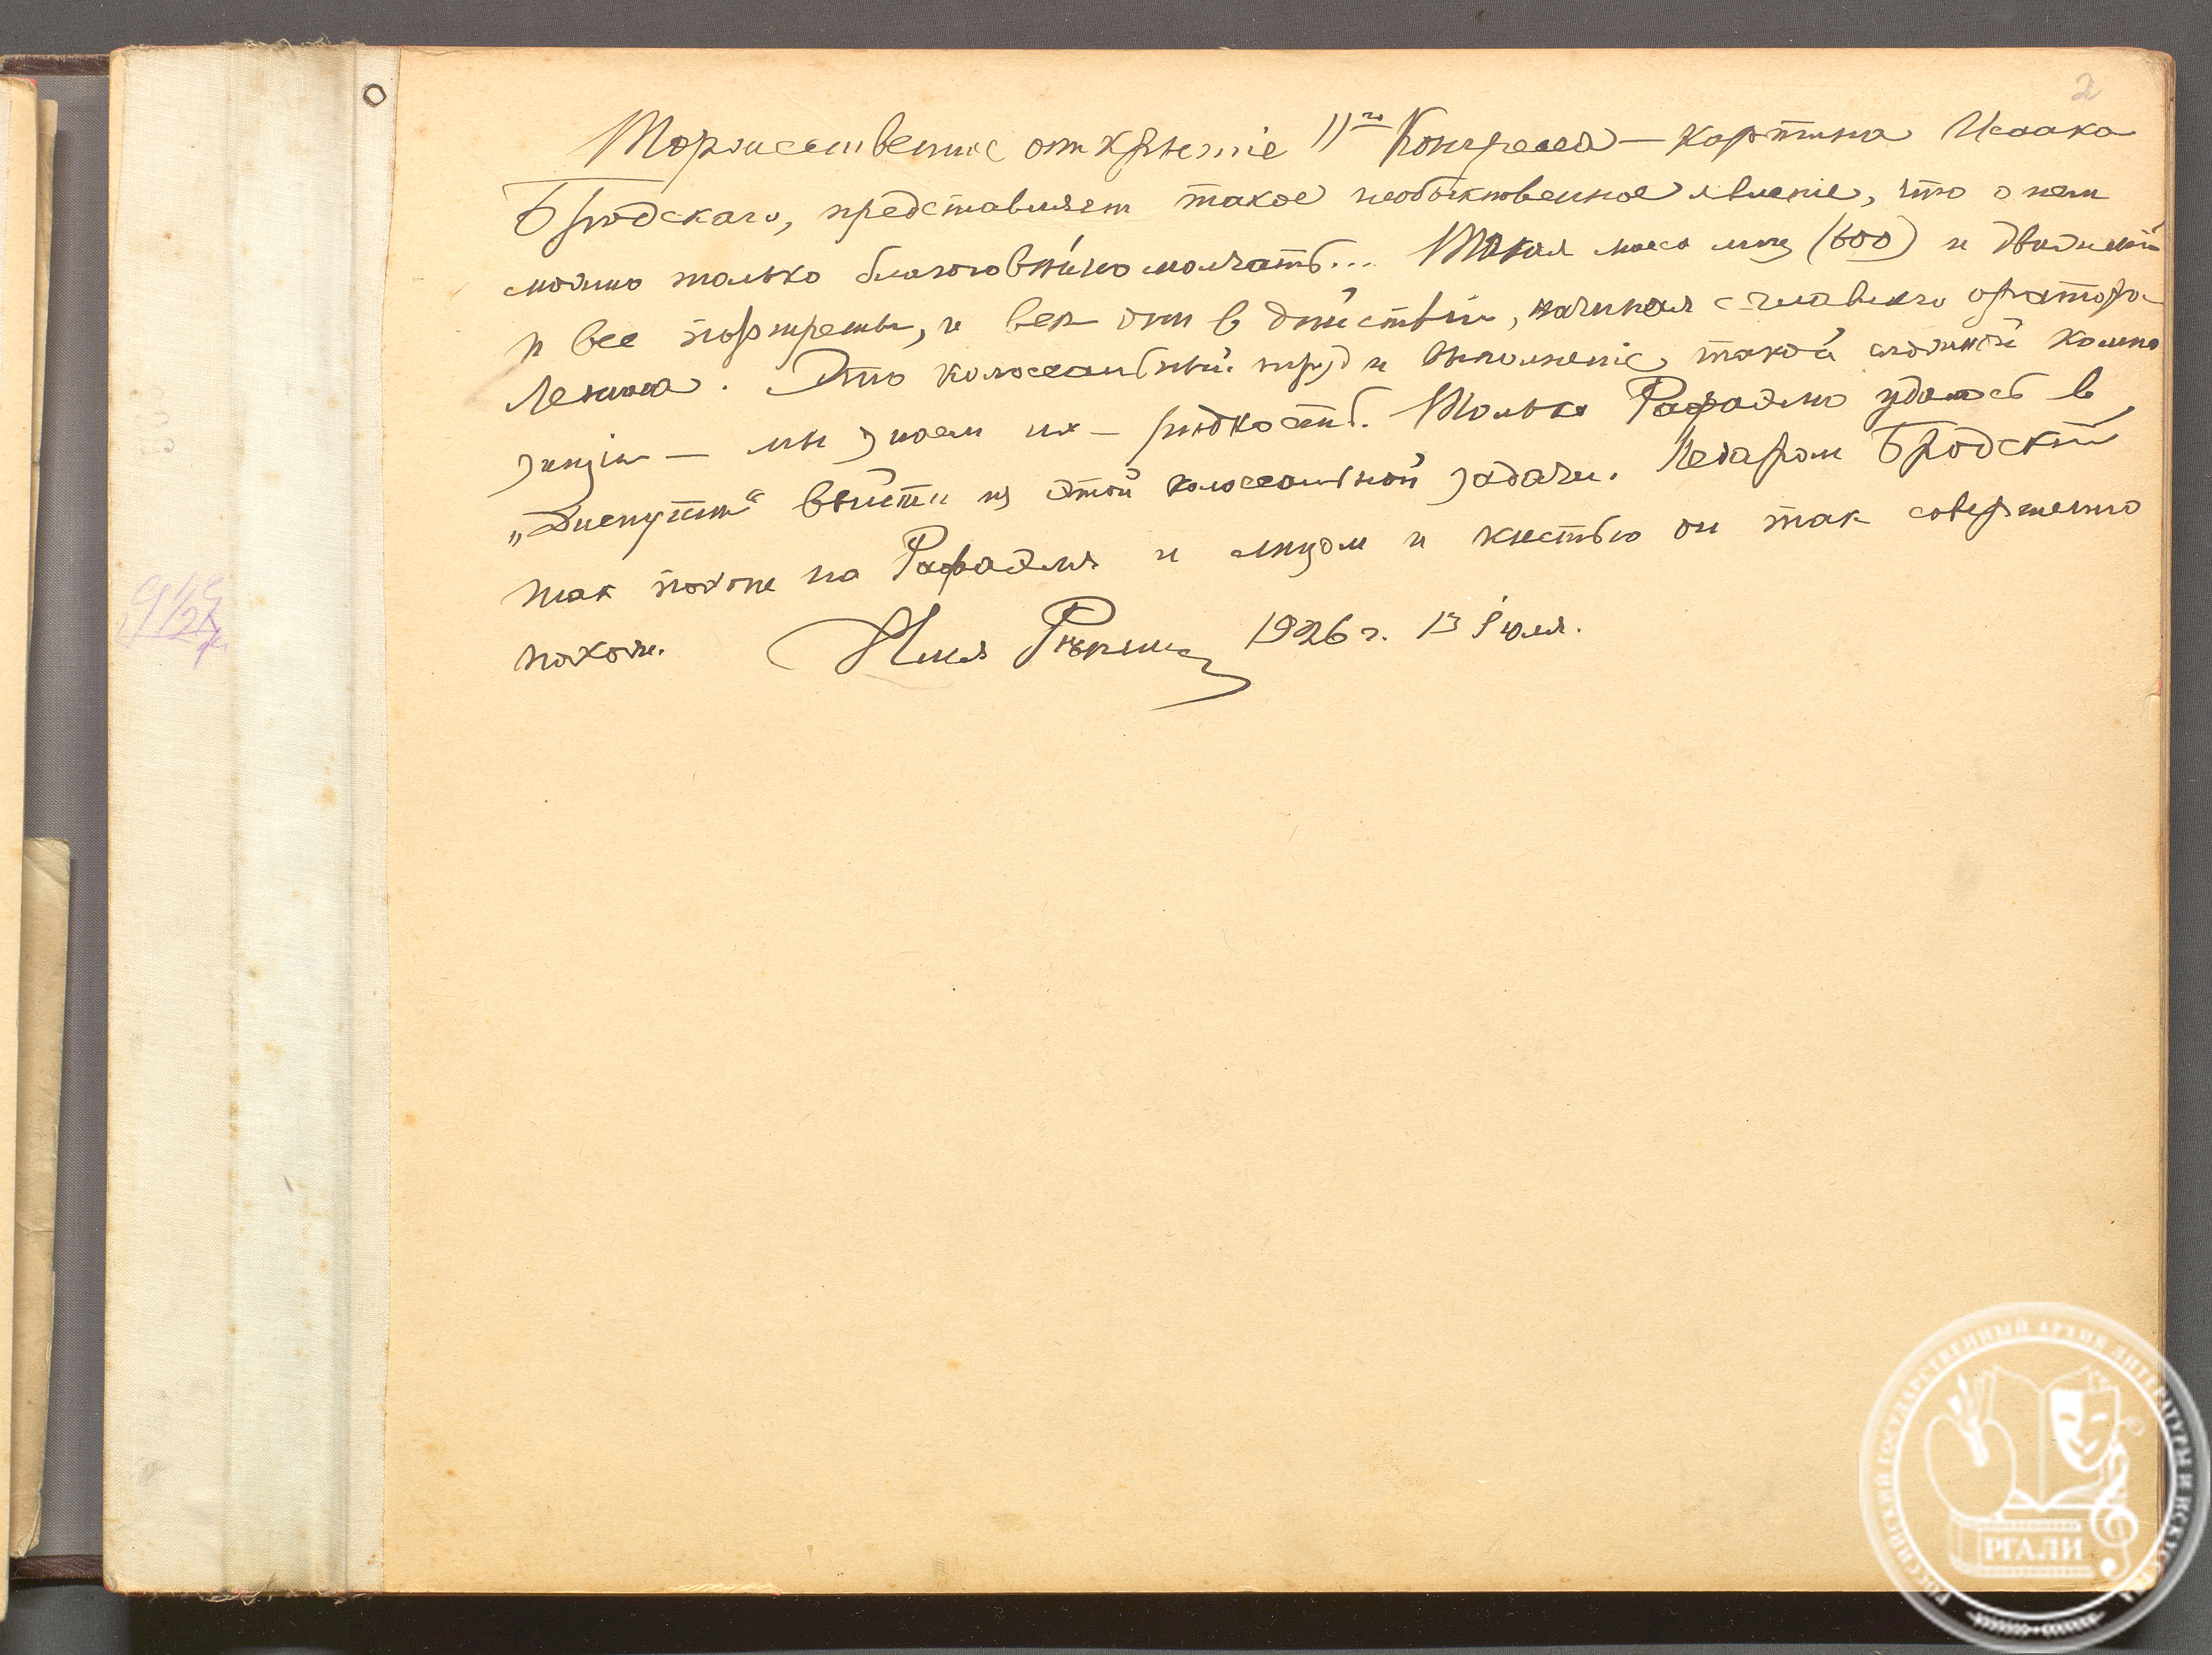 2
Торжественное открытiе II го Конгресса — картина Исаака
Бродскаго, представляет такое необыкновенное явленiе, что о нем
можно только благоговѣйно молчать... Такая масса лиц (600) и движенiй
и все портреты, и все они в дѣйствiи, начиная с главнаго оратора
Ленина. Это колоссальный труд и выполненiе такой сложной компо
зицiи — мы знаем их — рѣдкость. Только Рафаэлю удалось в
„Диспутѣ“ выйти из этой колоссальной задачи. Недаром Бродскiй
так похож на Рафаэля и лицом и кистью он так совершенно
похож. Илья Рѣпин 1926 г. 13 Iюля.
РОССИЙСКИЙ ГОСУДАРСТВЕННЫЙ АРХИВ ЛИТЕРАТУРЫ И ИСКУССТВА
РГАЛИ